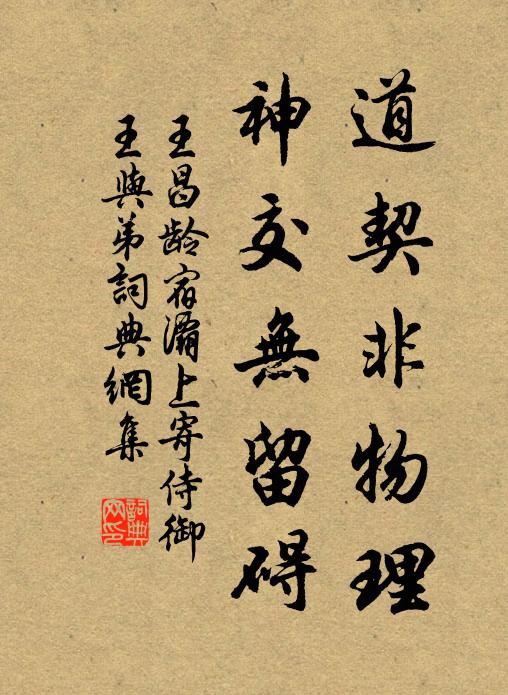 道契非物理
神交無留碍
王昌龄宿灞上寄侍御
王與弟詞典網集
詞典
网印